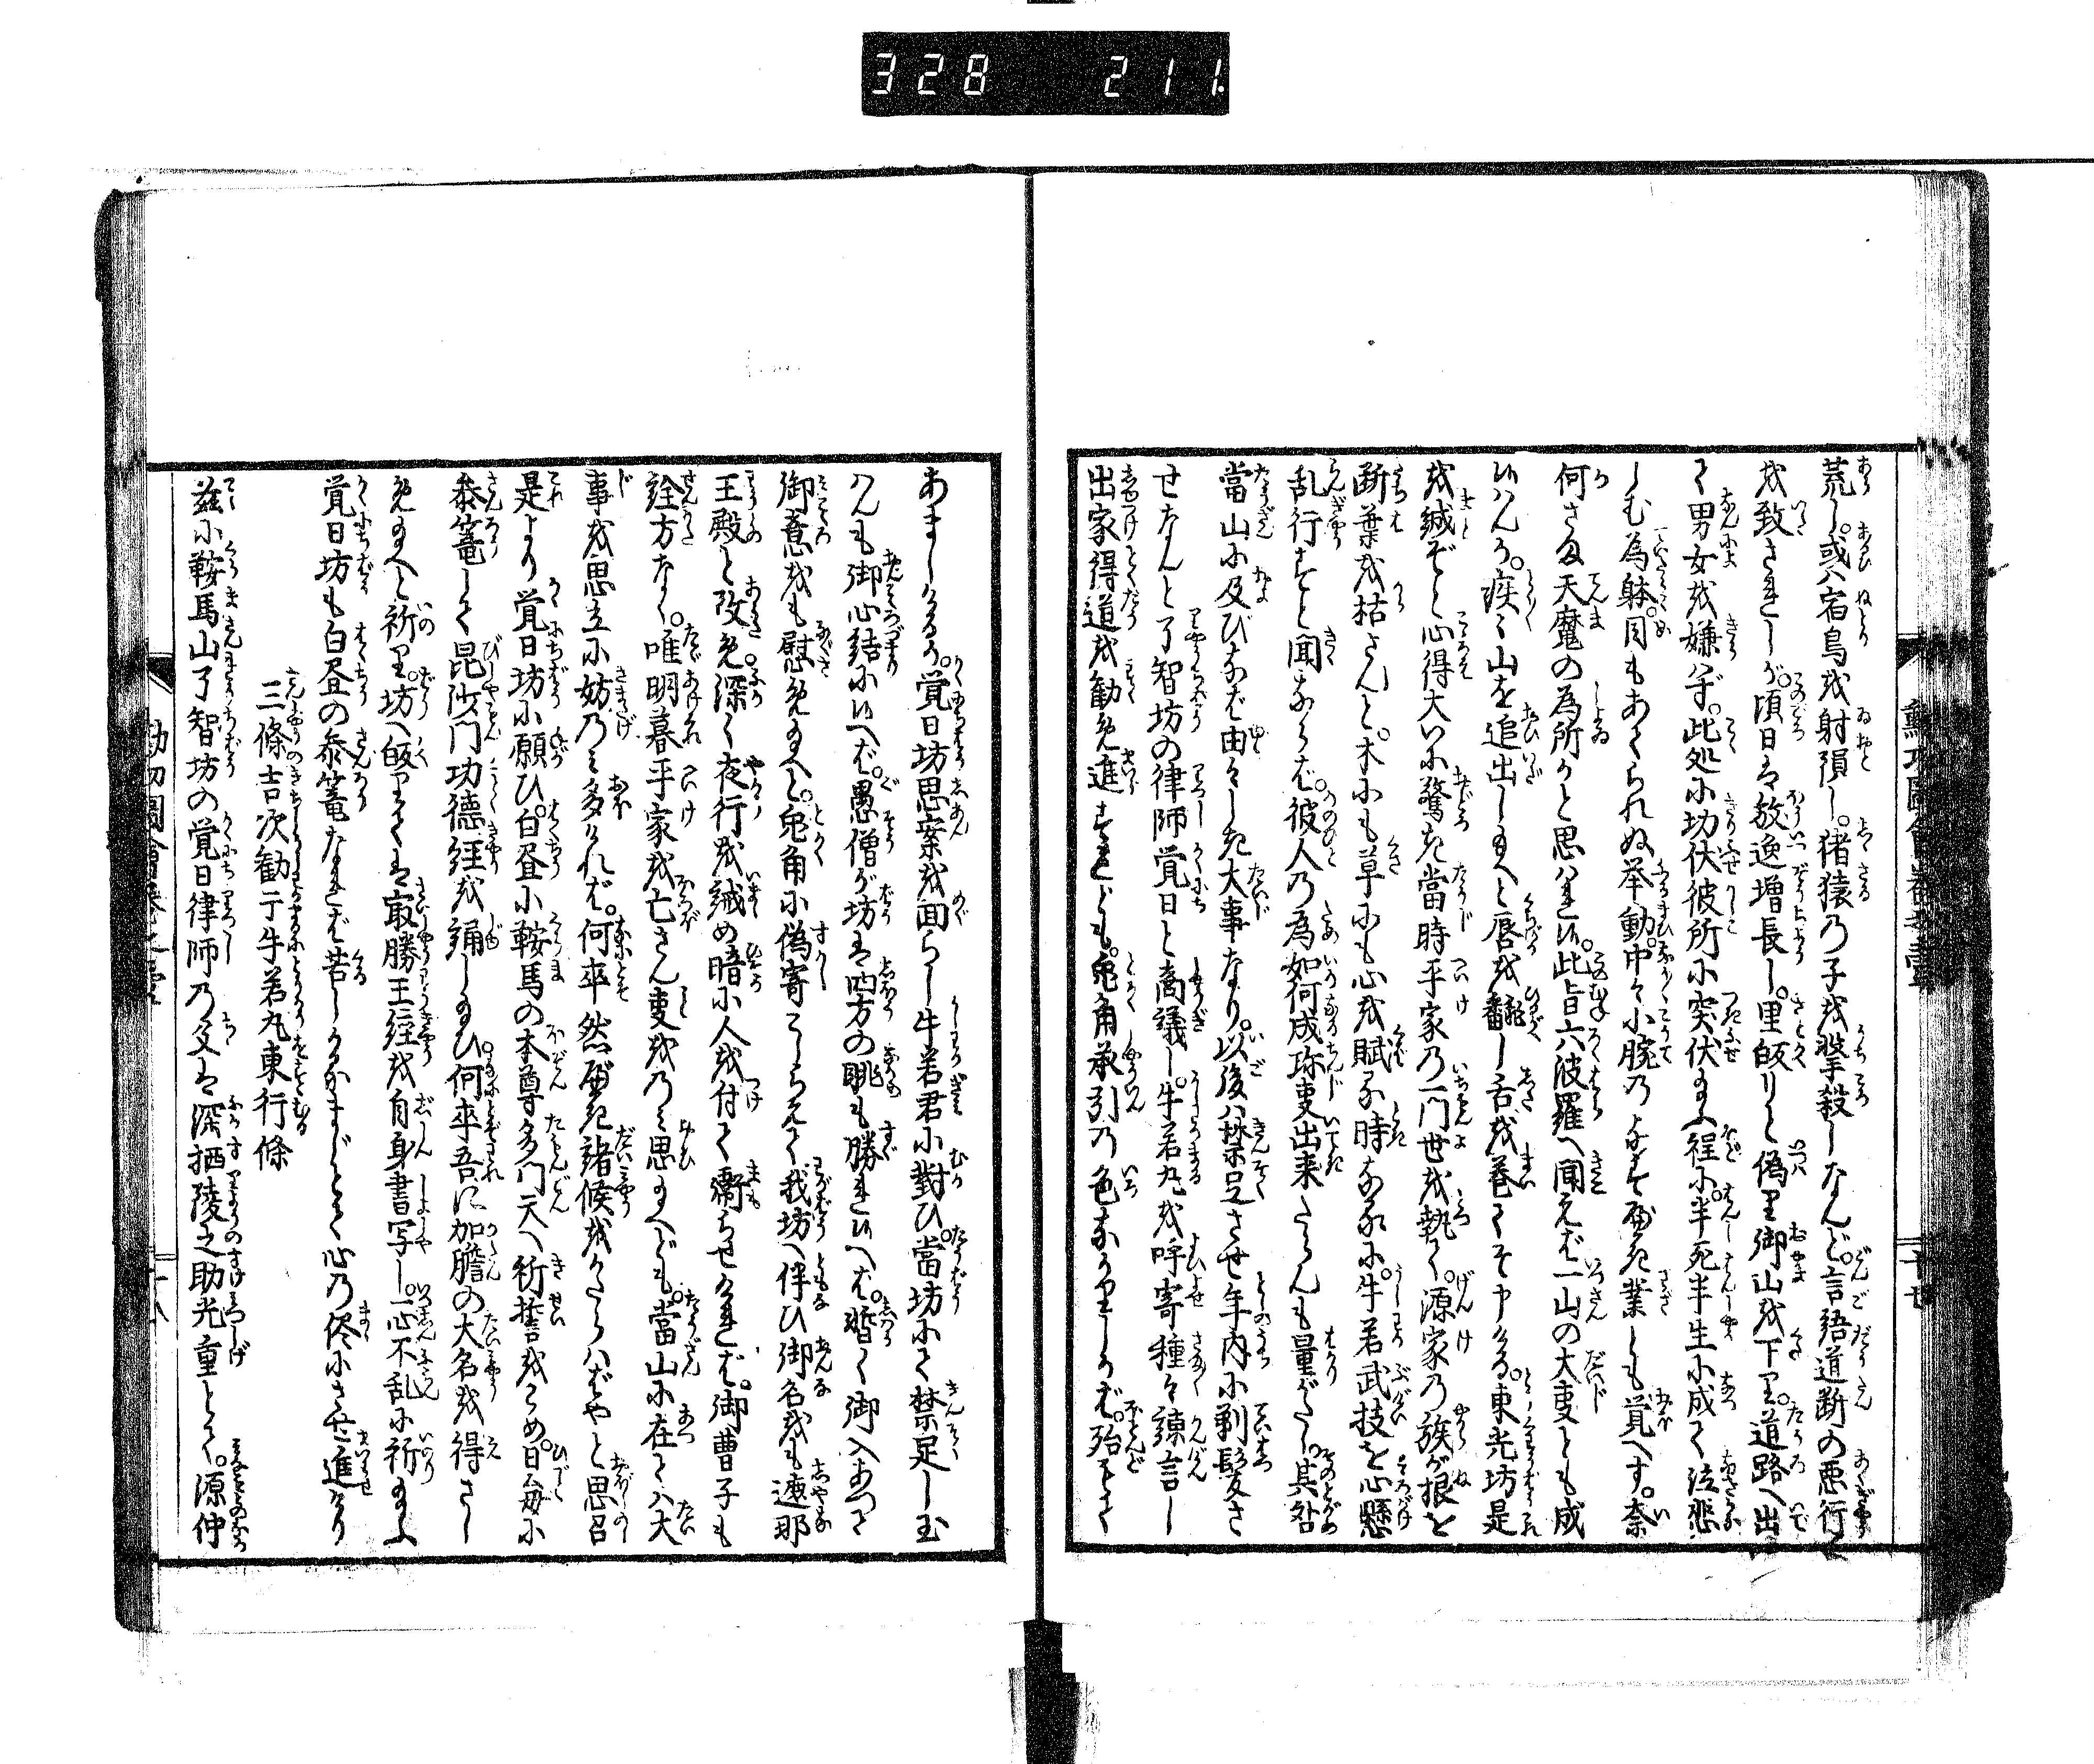 328 211
荒し。或ハ宿鳥を射隕し。猪猿の子を撃殺しなんど。言語道断の悪行
を致されしが。頃日は放逸増長し。里皈りと偽り御山を下り。道路へ出
て男女を嫌はず。此処に切伏彼所に突伏給ふ程に。半死半生に成て泣悲
しむ為躰。目もあてられぬ挙動。中々小腕のよすべき業とも覚へす。奈
何さま天魔の為所かと思はれ候。此旨六波羅へ聞えば一山の大事とも成
候はんか。疾々山を追出し給へと唇を翻し舌を巻てぞ申ける。東光坊是
を誠ぞと心得大いに驚き當時平家の一門世を執て。源家の族が根を
断葉を枯さんと。木にも草にも心を賦る時なるに。牛若武技を心懸
乱行すと聞ならば。彼人の為如何成珍事出来たらんも量がたし。其咎
當山に及びなば由々しき大事なり。以後ハ禁足させ年内に剃髪さ
せなんと了智坊の律師覚日と商議し。牛若丸を呼寄種々諫言し
出家得道を勧め進すれども。兎角承引の色なかりしかば。殆もて
あましけるが。覚日坊思案を面らし牛若君に對ひ。當坊にて禁足し玉
はんも御心結に候へば。愚僧が坊は四方の眺も勝れ候へば。暫く御入あつて
御意をも慰め給へと。兎角に偽寄こしらえて我坊へ伴ひ御名をも遮那
王殿と改め。深く夜行を誡め暗に人を付て衛らせければ。御曹子も
詮方なく。唯明暮平家を亡さん事をのみ思給へども。當山に在てハ大
事を思立に妨のみ多かれば。何卒然るべき諸候をかたらはばやと思召
是より覚日坊に願ひ。白昼に鞍馬の本尊多門天へ祈誓をこめ。日毎に
参篭して毘沙門功徳経を誦し給ひ。何卒吾に加膽の大名を得さし
め給へと祈り。坊へ皈りては寂勝王経を自身書写し。一心不乱に祈給ふ
覚日坊も白昼の参篭なれば苦しかるまじとて心の侭にさせ進けり
三條吉次勧于牛若丸東行條
茲に鞍馬山了智坊の覚日律師の父は深栖陵之助光重とて。源仲